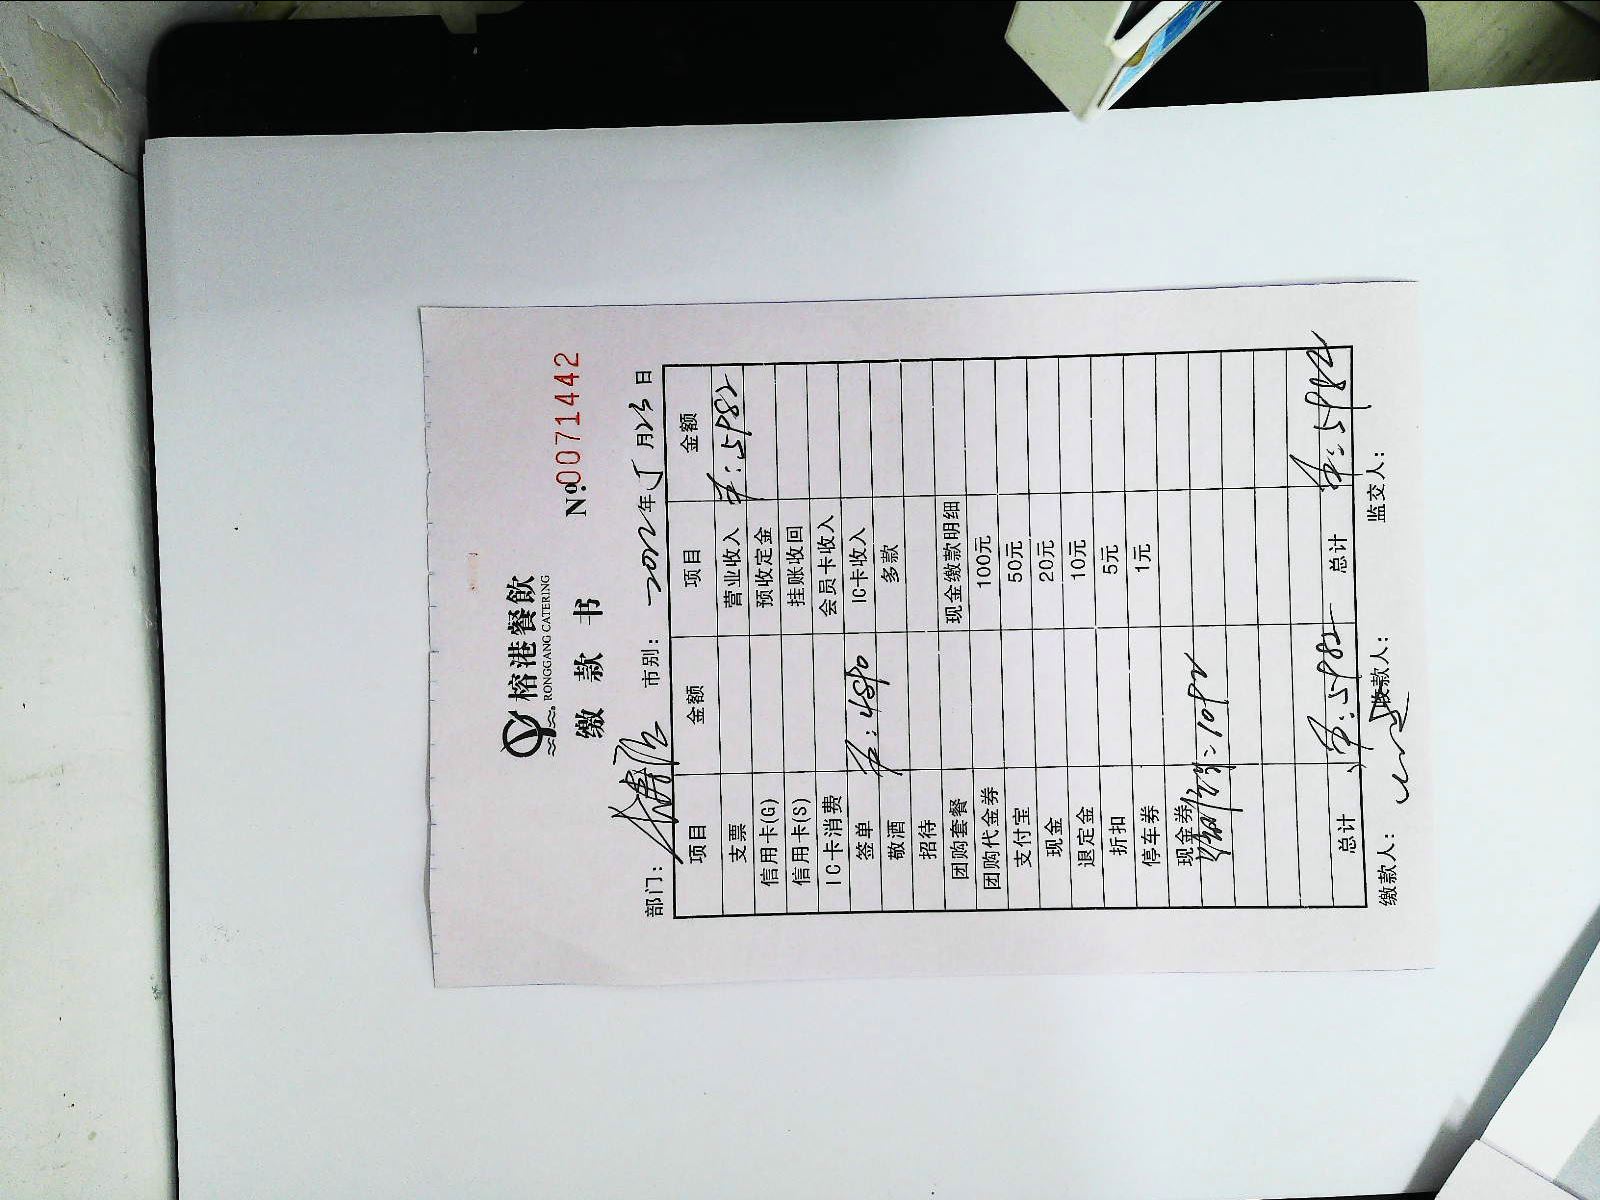 榕港餐飲
RONGGANG CATERING
缴 款 书
No.0071442
部门: 市别: 2022年5月23日
项目 金额 项目 金额
支票 营业收入 5982
信用卡(G) 预收定金
信用卡(S) 挂账收回
IC卡消费 会员卡收入
签单 IC卡收入
敬酒 多款
招待
团购套餐 现金缴款明细
团购代金券 100元
支付宝 50元
现金 20元
退定金 10元
折扣 5元
停车券 1元
现金券
总计 5982 总计 5982
缴款人: 收款人: 监交人: